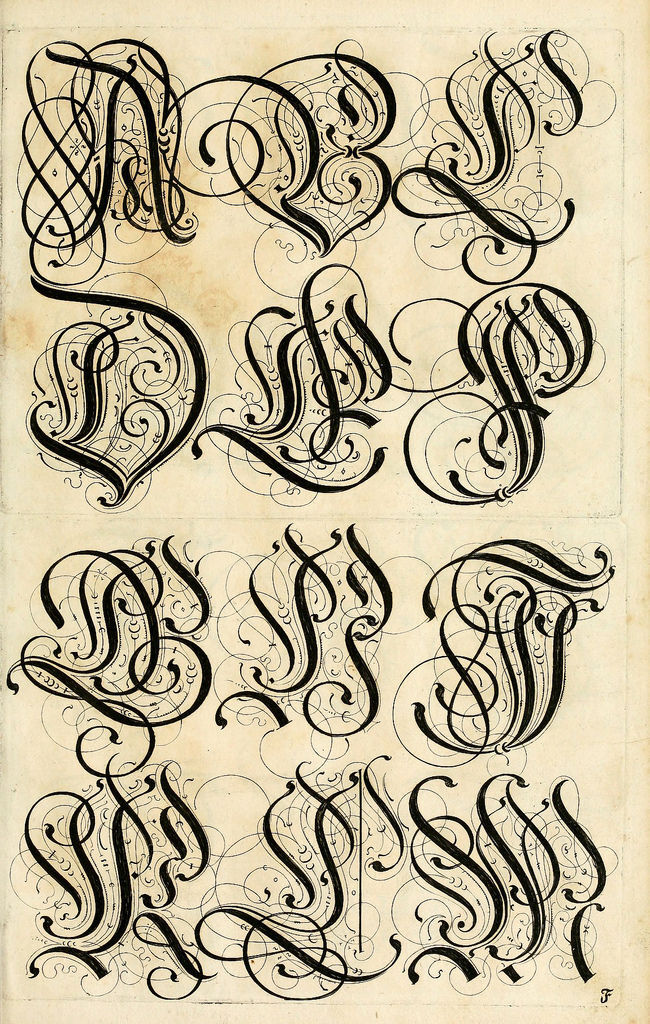 A B C
D E F
G H I
K L M
F